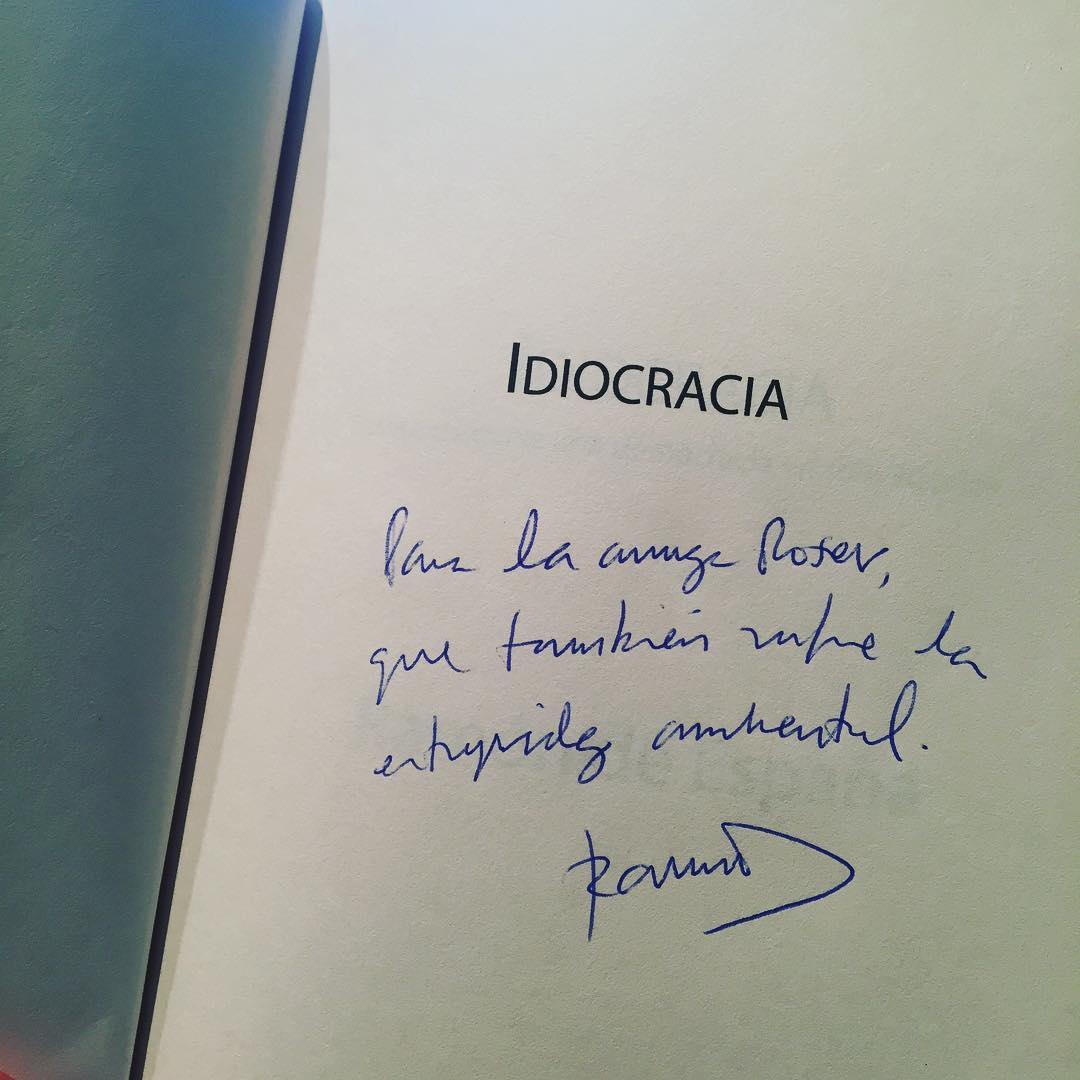 IDIOCRACIA
Para la amiga Roser,
que también sufre la
estupidez ambiental.